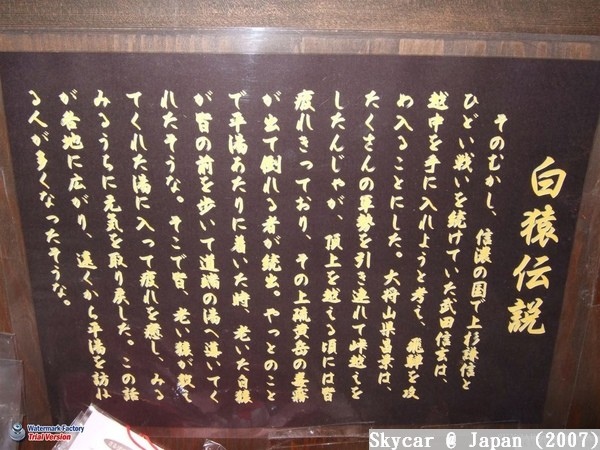 白猿伝説
そのむかし、信濃の国で上杉謙信と
ひどい戦いを続けていた武田信玄は、
越中を手に入れようと考え、飛騨を攻
め入ることにした。大将山県昌景は、
たくさんの軍勢を引き連れて峠越えを
したんじゃが、頂上を越える頃には皆
疲れきっており、その上硫黄岳の毒霧
が出て倒れる者が続出。やっとのこと
で平湯あたりに着いた時、老いた白猿
が皆の前を歩いて道端の湯へ導いてく
れたそうな。そこで皆、老い猿が教え
てくれた湯に入って疲れを癒し、みる
みるうちに元気を取り戻した。この話
が各地に広がり、遠くから平湯を訪ね
る人が多くなったそうな。
Watermark Factory
Trial Version
Skycar @ Japan (2007)